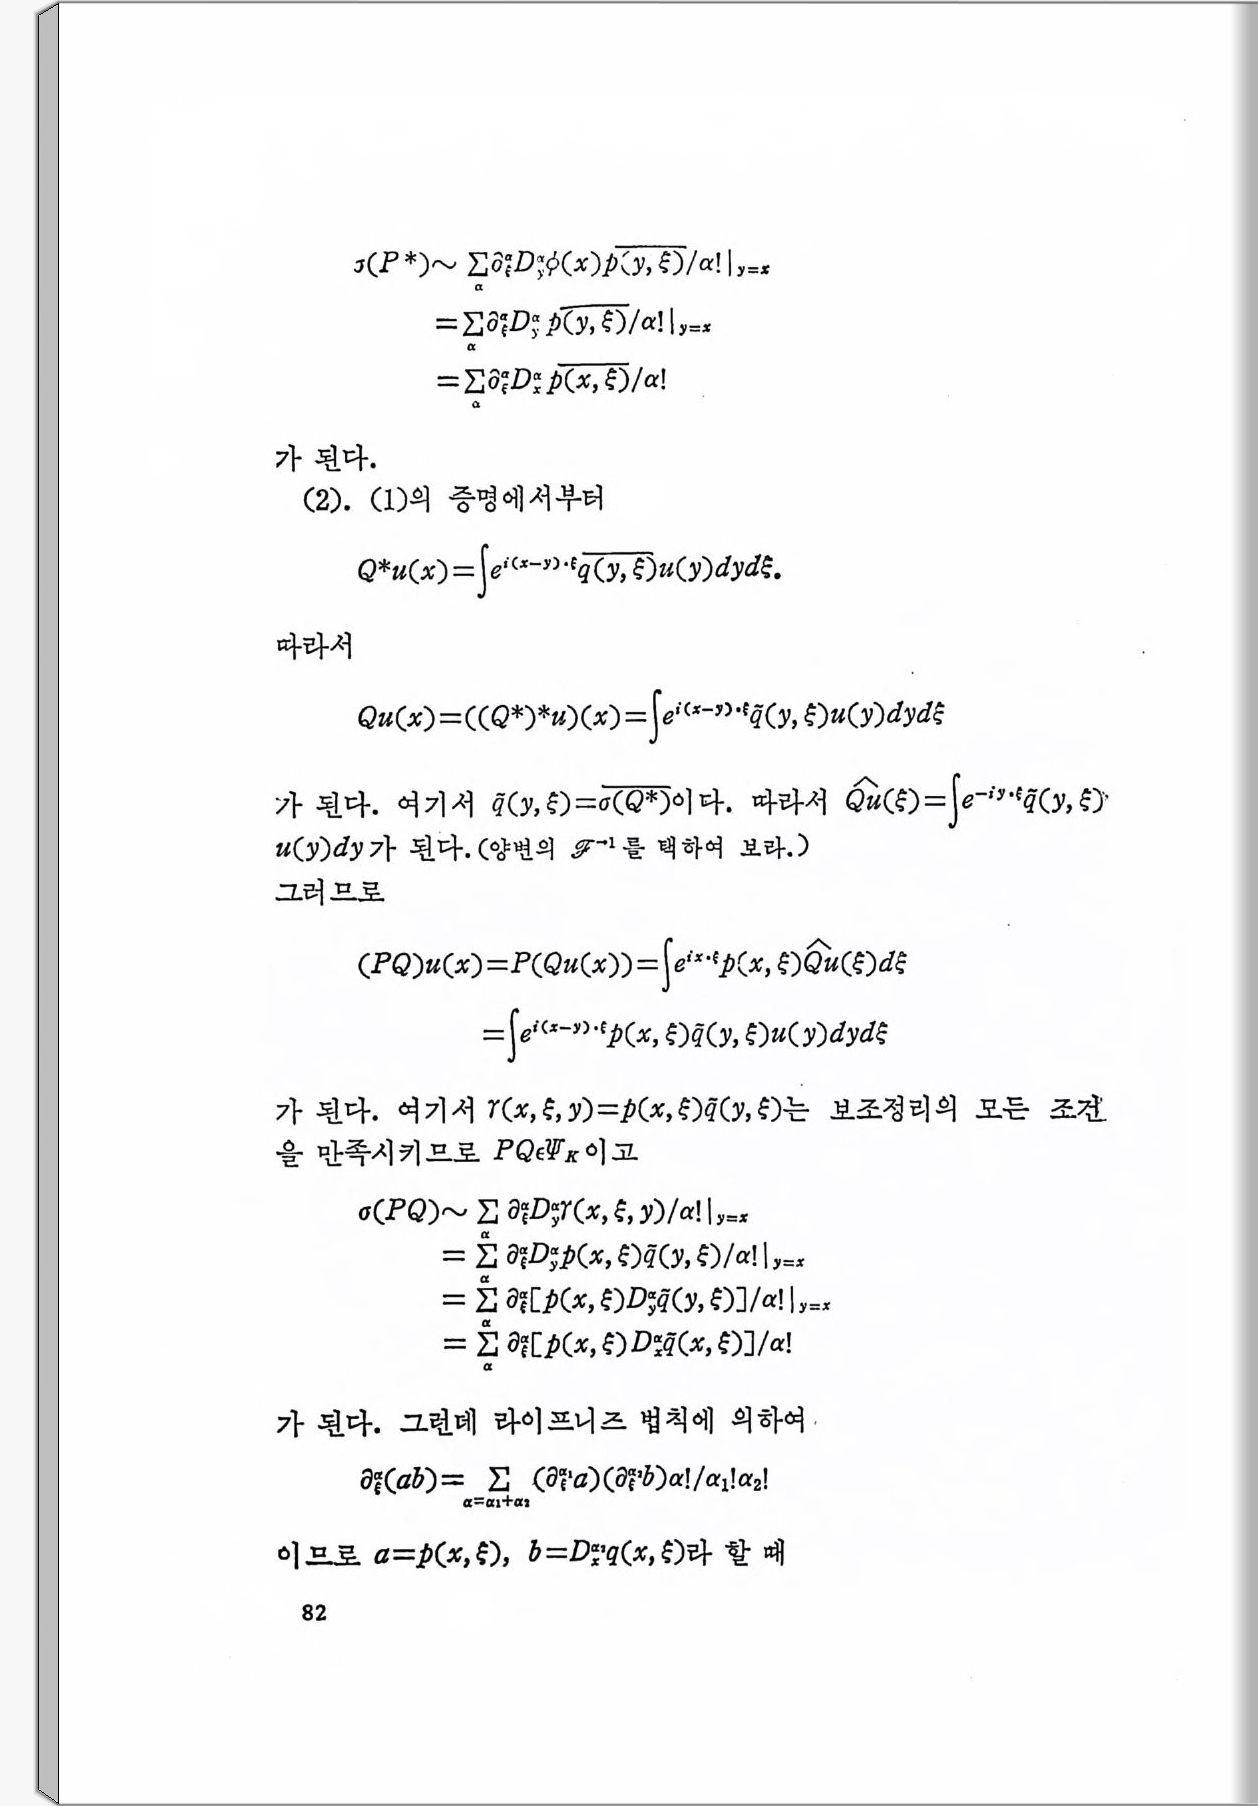 σ(P*)∼ ∑_α ∂_ξ^α D_y^α ϕ(x)p\overline{(y, ξ)}/α!|_{y=x}
=∑_α ∂_ξ^α D_y^α p\overline{(y, ξ)}/α!|_{y=x}
=∑_α ∂_ξ^α D_x^α p\overline{(x, ξ)}/α!
가 된다.
(2). (1)의 증명에서부터
Q*u(x)=∫e^{i(x−y)·ξ}\overline{q(y, ξ)}u(y)dydξ.
따라서
Qu(x)=((Q*)*u)(x)=∫e^{i(x−y)·ξ}q̃(y, ξ)u(y)dydξ
가 된다. 여기서 q̃(y, ξ)=\overline{σ(Q*)}이다. 따라서 \widehat{Qu}(ξ)=∫e^{−iy·ξ}q̃(y, ξ)
u(y)dy가 된다.(양변의 ℱ^{−1}를 택하여 보라.)
그러므로
(PQ)u(x)=P(Qu(x))=∫e^{ix·ξ}p(x, ξ)\widehat{Qu}(ξ)dξ
=∫e^{i(x−y)·ξ}p(x, ξ)q̃(y, ξ)u(y)dydξ
가 된다. 여기서 r(x, ξ, y)=p(x, ξ)q̃(y, ξ)는 보조정리의 모든 조건
을 만족시키므로 PQϵΨ_K이고
σ(PQ)∼ ∑_α ∂_ξ^α D_y^α r(x, ξ, y)/α!|_{y=x}
= ∑_α ∂_ξ^α D_y^α p(x, ξ)q̃(y, ξ)/α!|_{y=x}
= ∑_α ∂_ξ^α[p(x, ξ)D_y^α q̃(y, ξ)]/α!|_{y=x}
= ∑_α ∂_ξ^α[p(x, ξ)D_x^α q̃(x, ξ)]/α!
가 된다. 그런데 라이프니즈 법칙에 의하여
∂_ξ^α(ab)= ∑_{α=α₁+α₂} (∂_ξ^{α₁}a)(∂_ξ^{α₂}b)α!/α₁!α₂!
이므로 a=p(x, ξ), b=D_x^{α₁}q(x, ξ)라 할 때
82